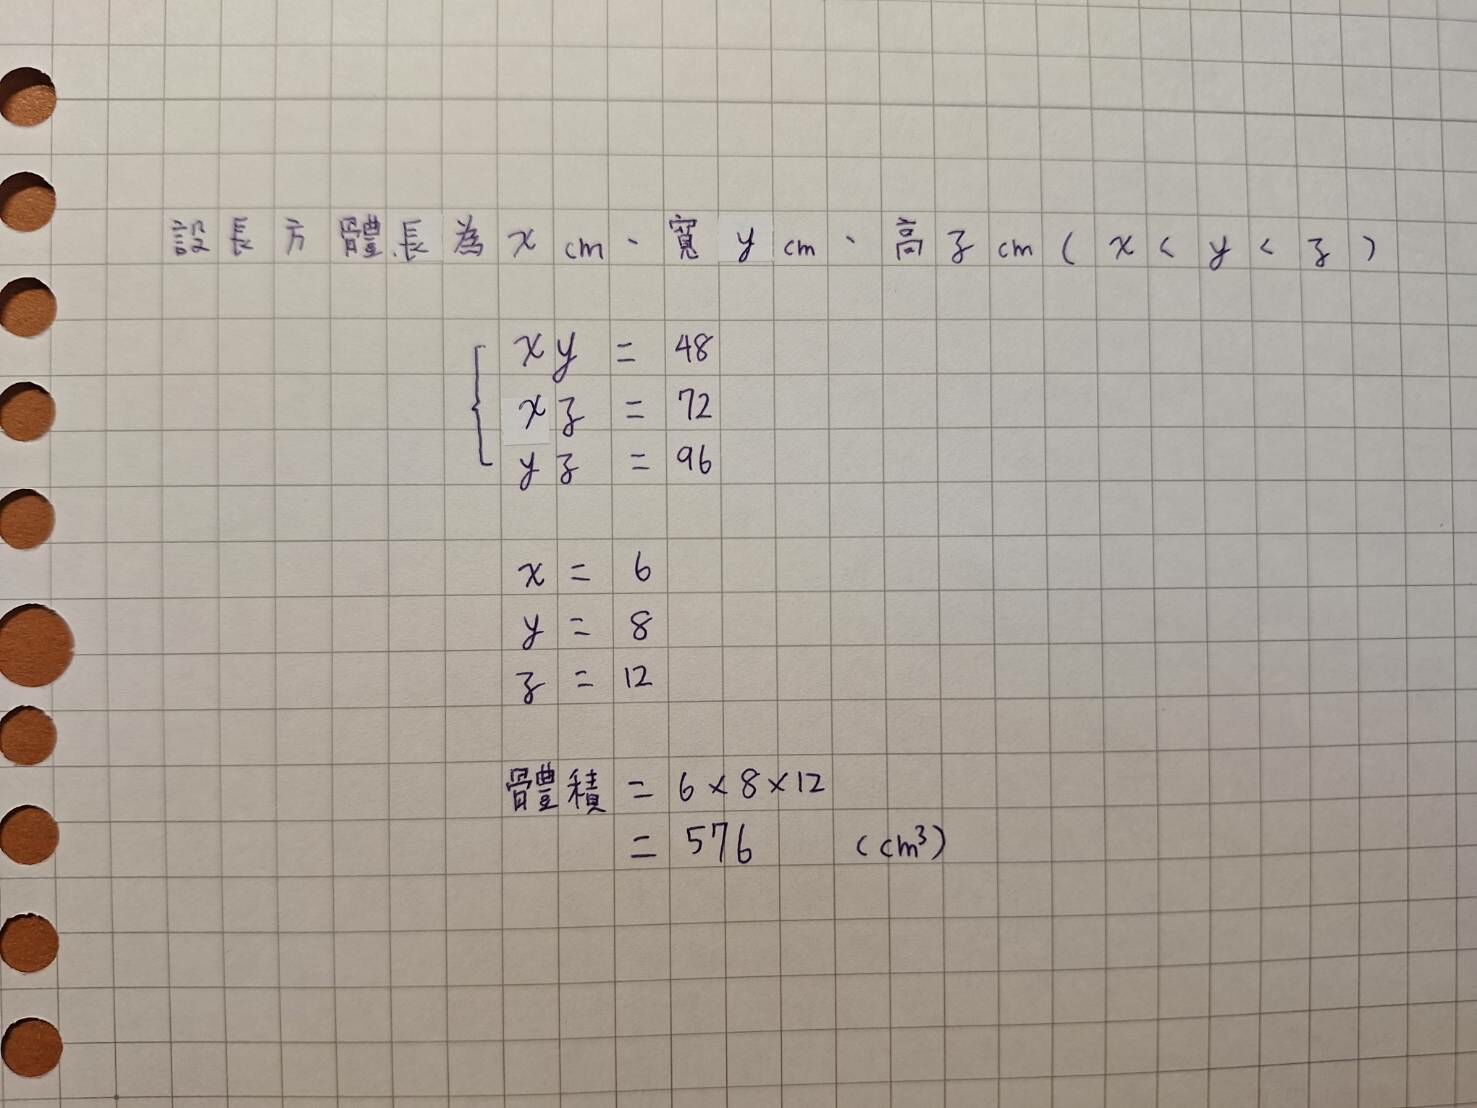 設長方體長為 x cm、寬 y cm、高 z cm ( x < y < z )
xy = 48
xz = 72
yz = 96
x = 6
y = 8
z = 12
體積 = 6 × 8 × 12
= 576 (cm³)